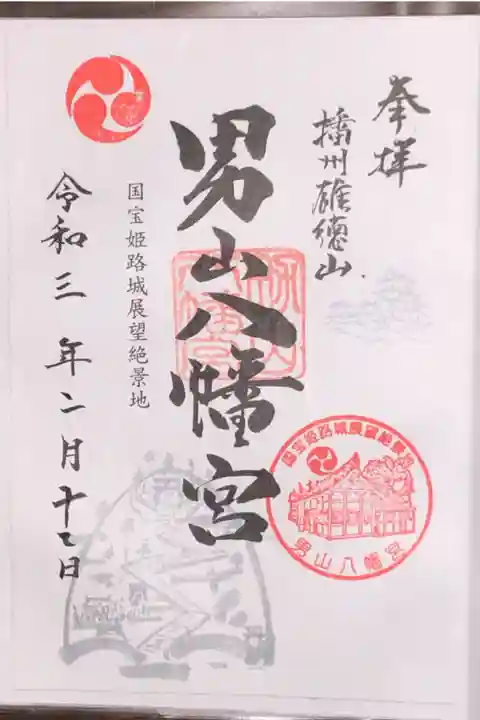 奉拝
播州雄徳山
男山八幡宮
国宝姫路城展望絶景地
国宝姫路城展望絶景地
男山八幡宮